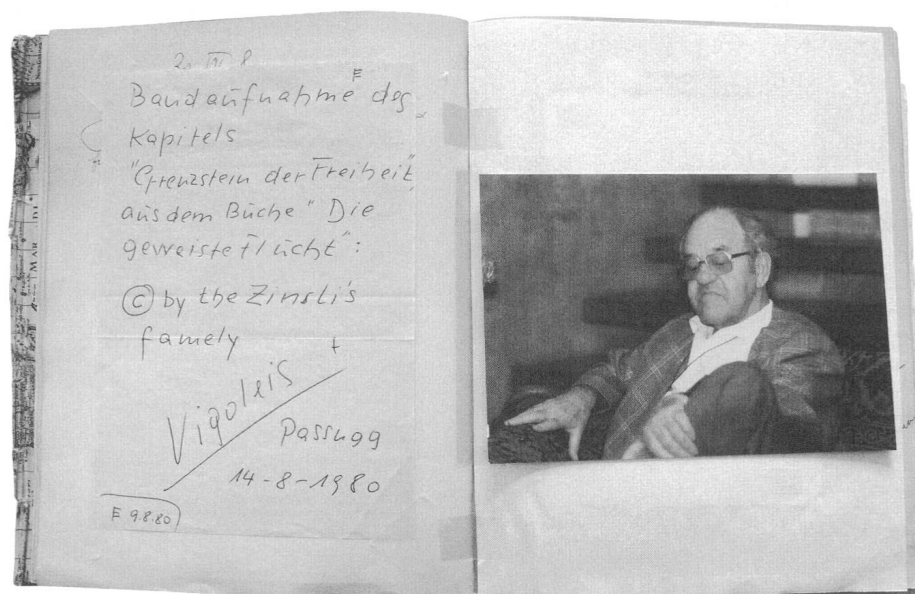 Bandaufnahme des
Kapitels
"Grenzstein der Freiheit"
aus dem Buche "Die
geweiste Flucht":
© by the Zinsli's
famely
Vigoleis
Passugg
14-8-1980
E 9.8.80